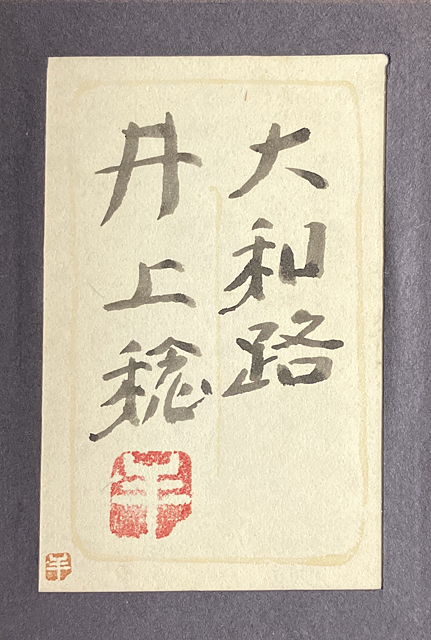 大和路
井上稔